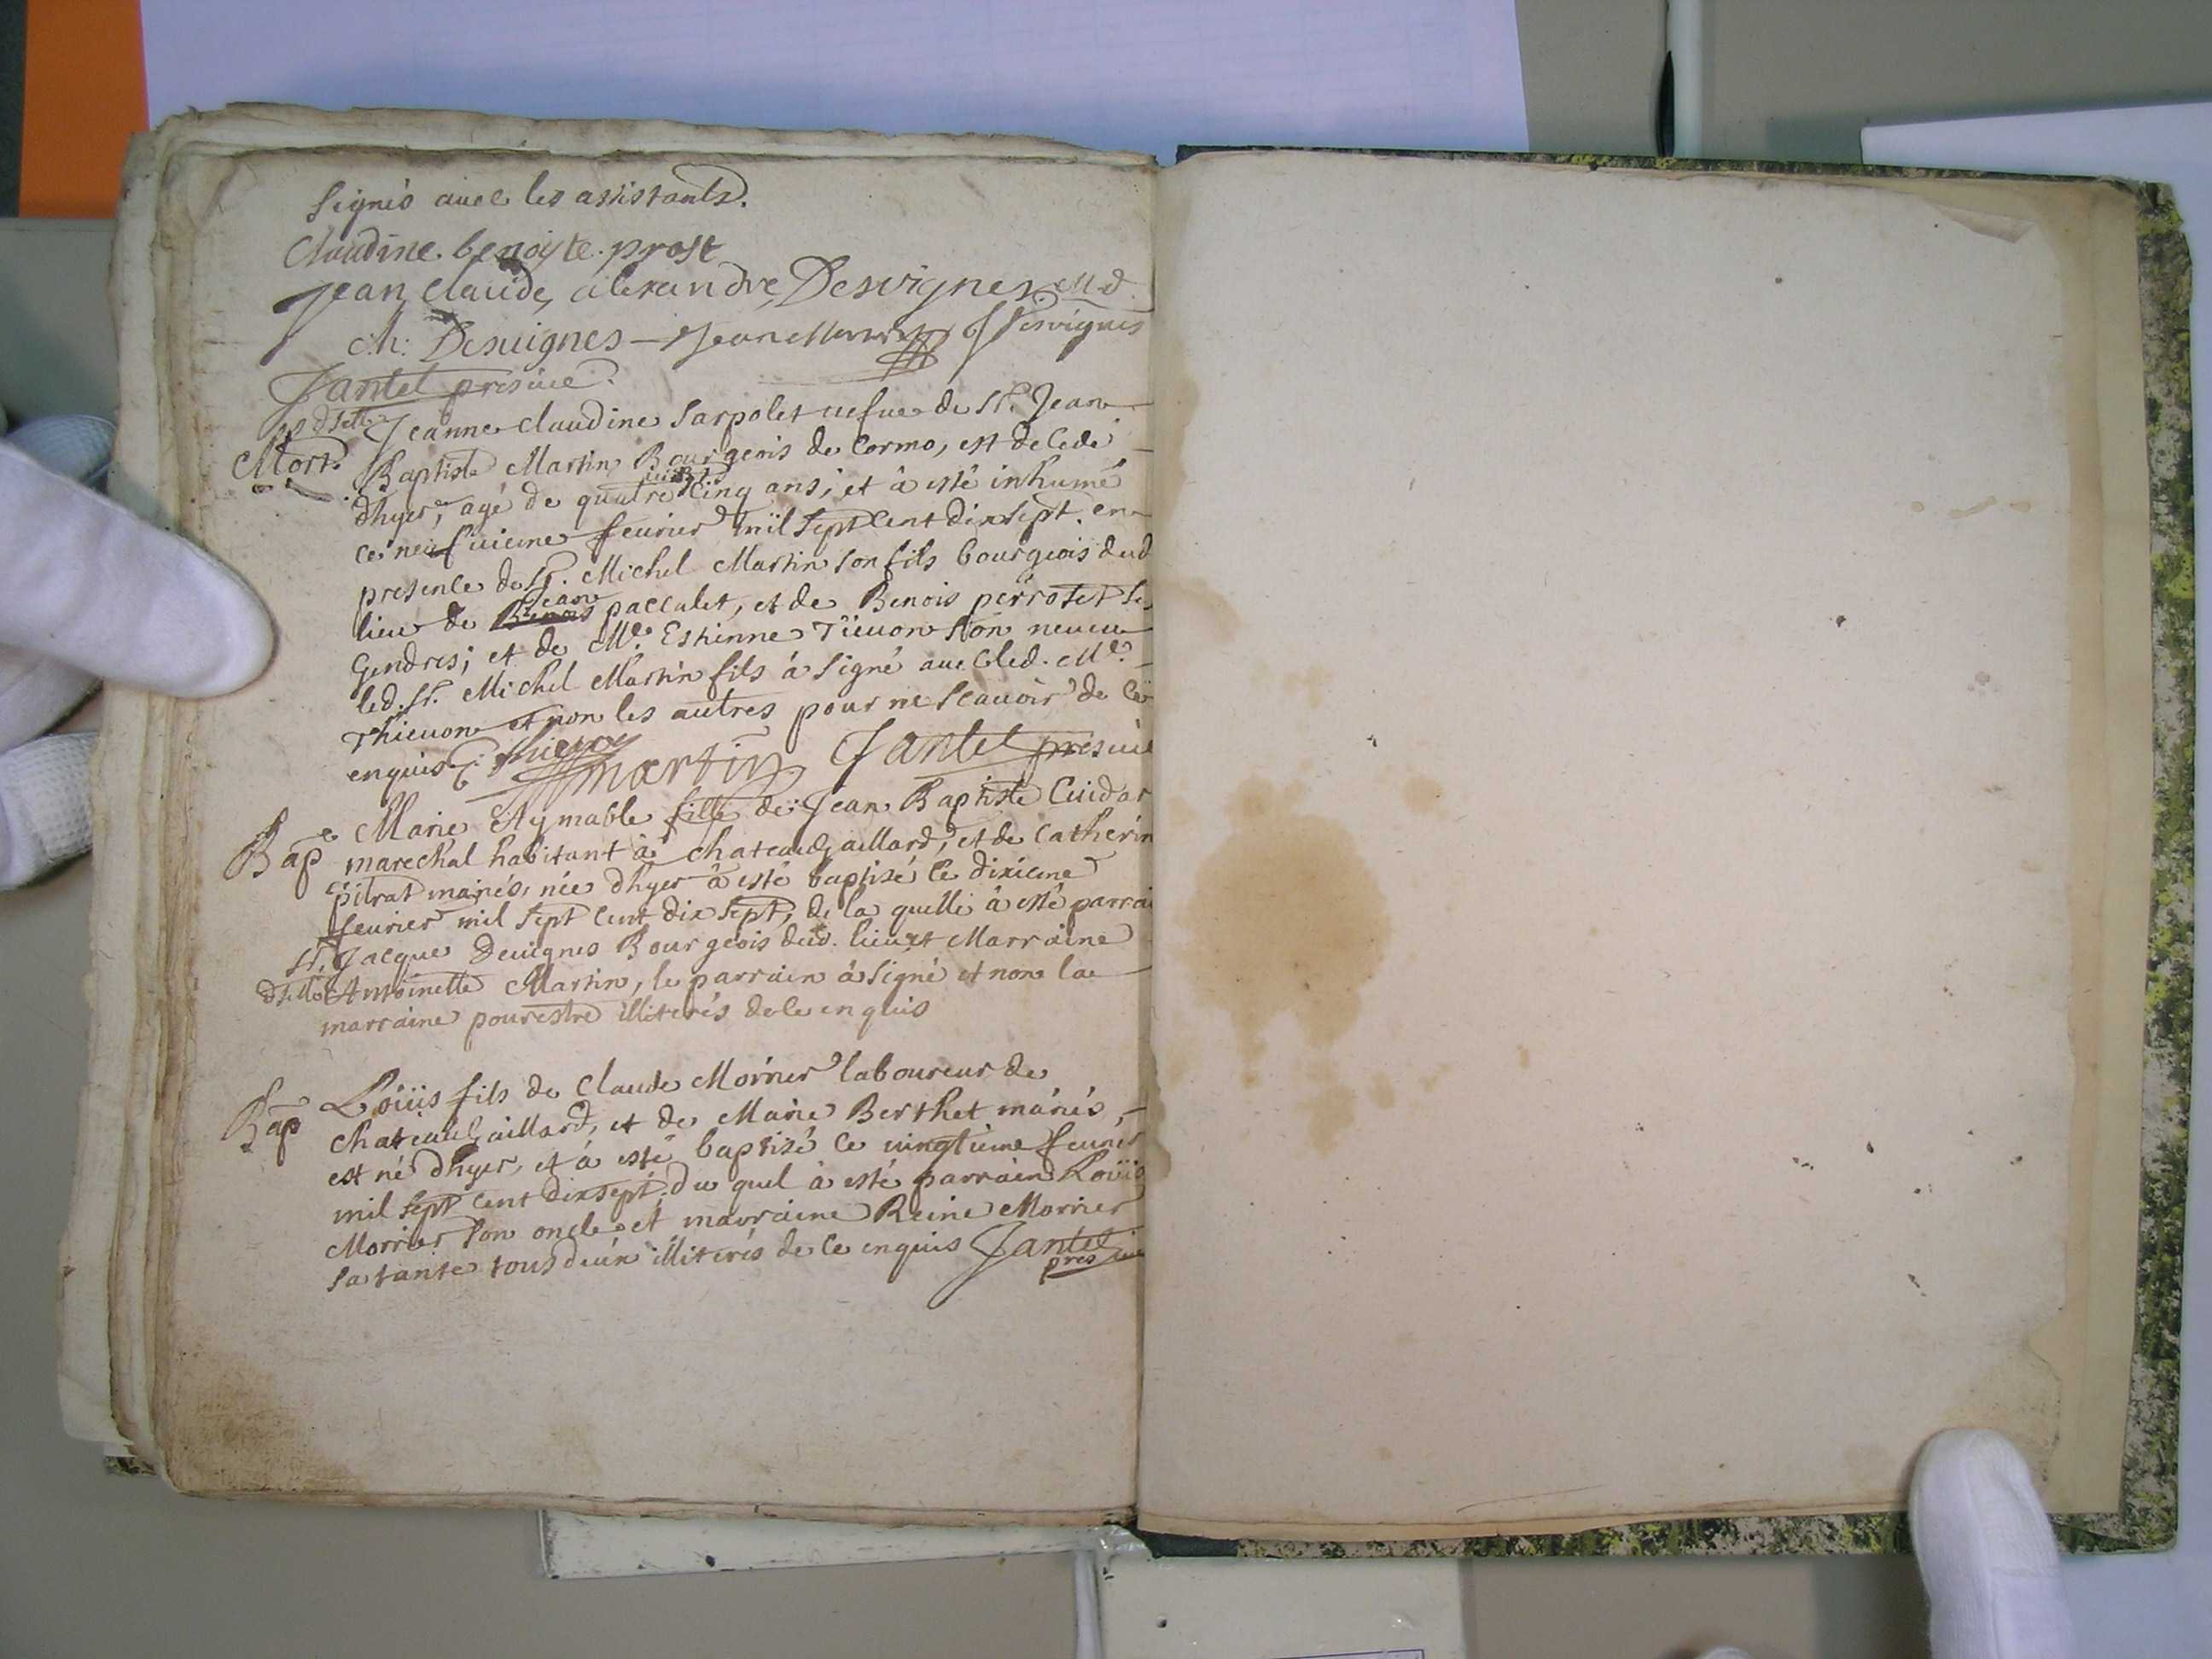 signés avec les assistants.
Claudine benoiste prost
jean claude, alexandre, Desvignes
ch: Desuignes – Jean Desvignes
Jantet presvice
dslle Jeanne Claudine Sarpolet uefue de Sr. Jean
Mort. Baptiste Martin Bourgeois de Cormo, est decedé
dhyer, agé de quatre uingt cinq ans, et à esté inhumé
ce neufuieme feurier mil sept cent dix sept. en
presence de Sr. Michel Martin son fils bourgeois dud
lieu de Jean paccalet, et de Benois perrotet ses
Gendres; et de Me. Estienne Tieuon son neueu
led. Sr. Michel Martin fils à signé auec led. Me.
Thieuon et non les autres pour ne scauoir de ce
enquis. Thieuon martin Jantet presuic
Marie Aymable fille de Jean Baptiste Cuidar
Bap marechal habitant à chateaugaillard, et de Catherin
pitrat mariés, née dhyer à esté baptisé ce dixieme
feurier mil sept cent dix sept, de la quelle à esté parrai
Sr. Jacque Deuignes Bourgeois dud. lieu, et Marraine
dslle Antoinette Martin, le parrain à signé et non la
marraine pour estre illiterés de ce enquis
Loüis fils de Claude Morrier laboureur de
Bap chateaugaillard, et de Marie Berthet mariés,
est né dhyer, et à esté baptisé ce uingtieme feurier
mil sept cent dix sept, du quel à esté parrain Loüis
Morrier son oncle et marraine Reine Morrier
sa tante tous deux illiterés de ce enquis Jantet
pres uic